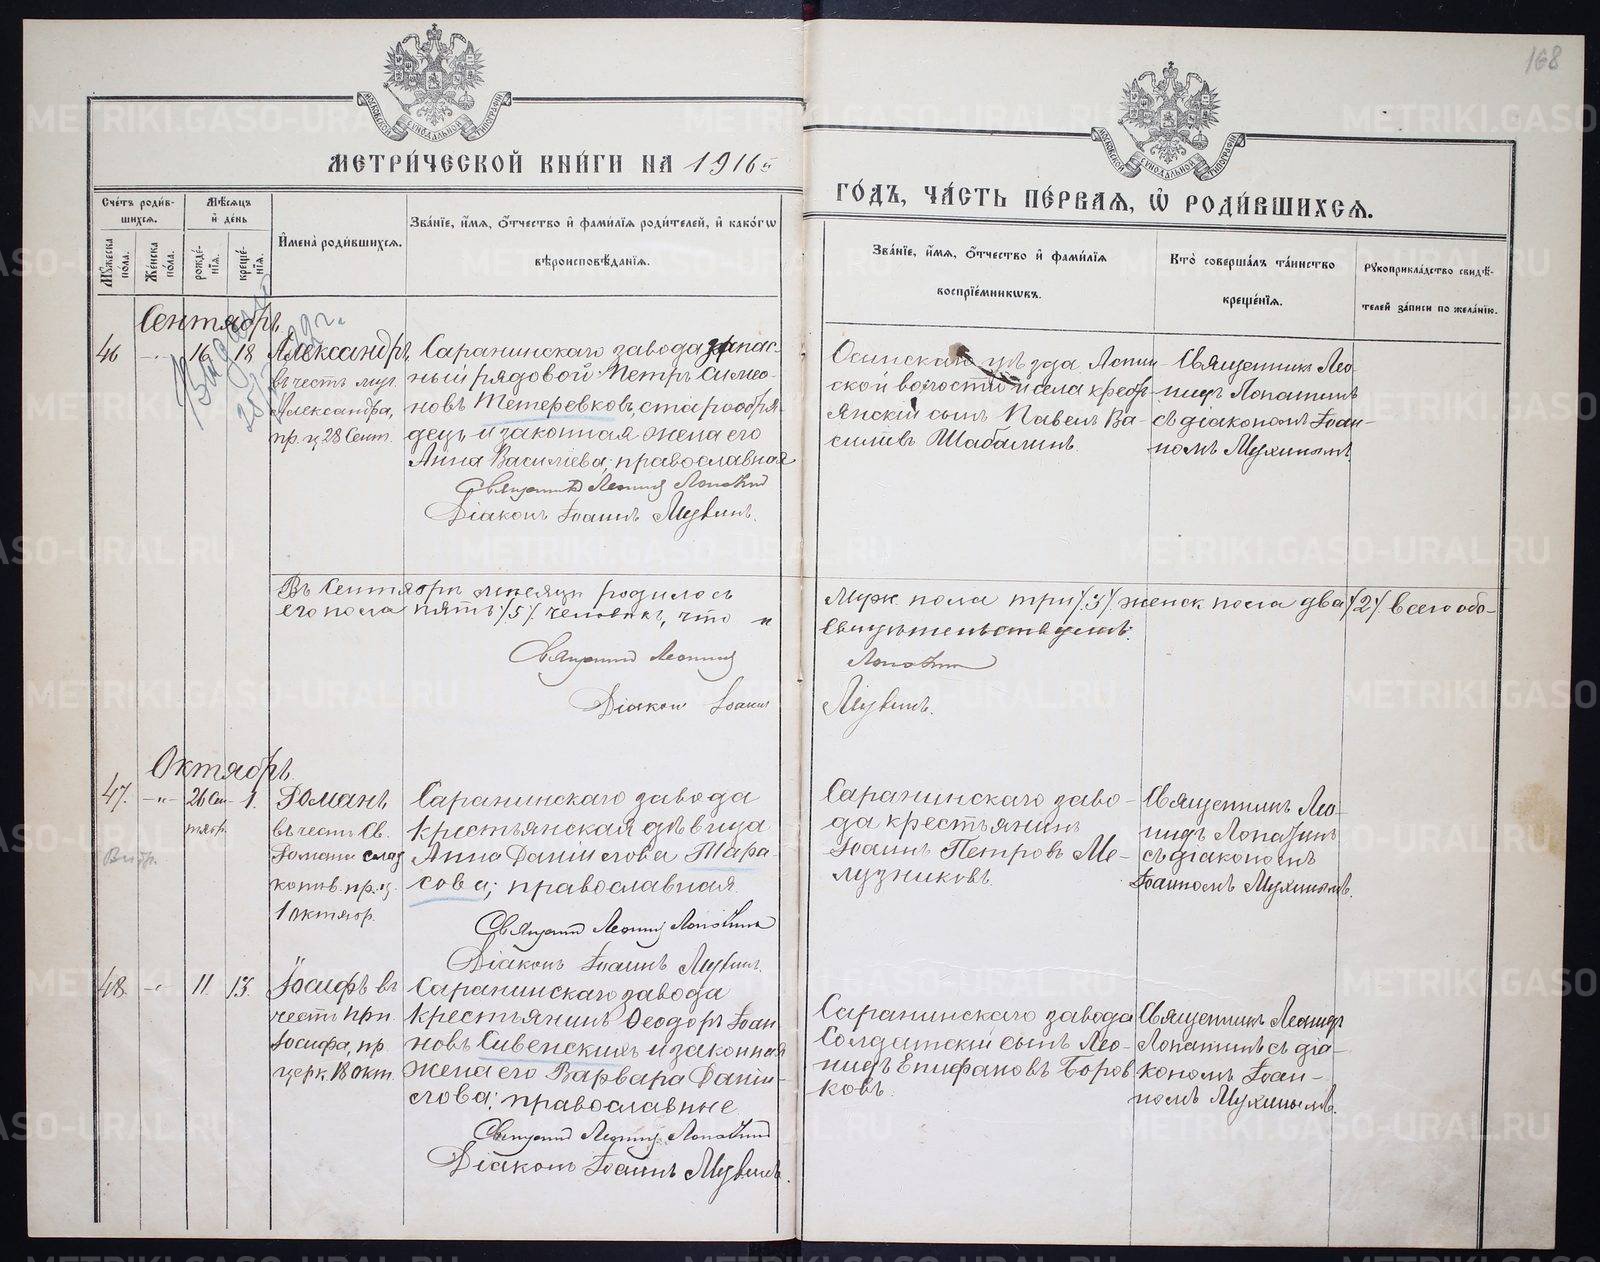 168
МОСКОВСКОЙ СѴНОДАЛЬНОЙ ТИПОГРАФІИ
МОСКОВСКОЙ СѴНОДАЛЬНОЙ ТИПОГРАФІИ
МЕТРИ́ЧЕСКОЙ КНИ́ГИ НА 1916 й
ГО́ДЪ, ЧА́СТЬ ПЕ́РВАЯ, Ѡ҆ РОДИ́ВШИХСЯ.
Сче́тъ роди́в-
шихся.
Мѣ́сяцъ
и҆ де́нь
Мꙋ́жеска
по́ла.
Же́нска
по́ла.
рожде́-
нїя.
креще́-
нїя.
И҆мена̀ роди́вшихся.
Зва́нїе, и҆́мя, ѻ҆́тчество и҆ фами́лїя роди́телей, и҆ како́гѡ
вѣроисповѣ́данїя.
Зва́нїе, и҆́мя, ѻ҆́тчество и҆ фами́лїя
воспрїе́мникѡвъ.
Кто̀ соверша́лъ та́инство
креще́нїя.
Рꙋкоприкла́дство свидѣ́-
телей за́писи по жела́нїю.
Сентябрь
46 -"- 16 18
Александръ
въ честь муч.
Александра,
пр. ц. 28 Сент.
Саранинскаго завода запас-
ный рядовой Петръ Симео-
новъ Тетеревковъ, старообря-
децъ и законная жена его
Анна Васильева; православная
Священникъ Леонидъ Лопатинъ
Діаконъ Іоаннъ Мухинъ.
Осинскаго уѣзда
ской волости и села
янскій сынъ Павелъ Ва-
сильевъ Шабалинъ.
Священникъ Лео-
нидъ Лопатинъ
съ діакономъ Іоан-
номъ Мухинымъ.
Въ Сентябрѣ мѣсяцѣ родилось
Муж. пола три /3/ женск. пола два /2/ всего обо-
его пола пять /5/ человѣкъ, что и
свидѣтельствуемъ:
Священникъ Леонидъ
Лопатинъ
Діаконъ Іоаннъ
Мухинъ.
Октябрь
47. -"- 26 Сен- 1.
тября
Романъ
въ честь Св.
Романа слад
копѣв. пр. ц.
1 Октябр.
Саранинскаго завода
крестьянская дѣвица
Анна Даніилова Тара-
сова; православная.
Священникъ Леонидъ Лопатинъ
Діаконъ Іоаннъ Мухинъ.
Саранинскаго заво-
да крестьянинъ
Іоаннъ Петровъ Ме-
лузниковъ.
Священникъ Лео-
нидъ Лопатинъ
съ діакономъ
Іоанномъ Мухинымъ.
48. -"- 11 13.
Іосифъ въ
честь прп.
Іосифа, пр.
церк. 18 Окт.
Саранинскаго завода
крестьянинъ Ѳеодоръ Іоан
новъ Сивенскихъ и законная
жена его Варвара Даніи-
лова; православные.
Священникъ Леонидъ Лопатинъ
Діаконъ Іоаннъ Мухинъ.
Саранинскаго завода
Солдатскій сынъ Лео-
нидъ Епифановъ Боров
ковъ.
Священникъ Леонидъ
Лопатинъ съ діа-
кономъ Іоан-
номъ Мухинымъ.
METRIKI.GASO-URAL.RU